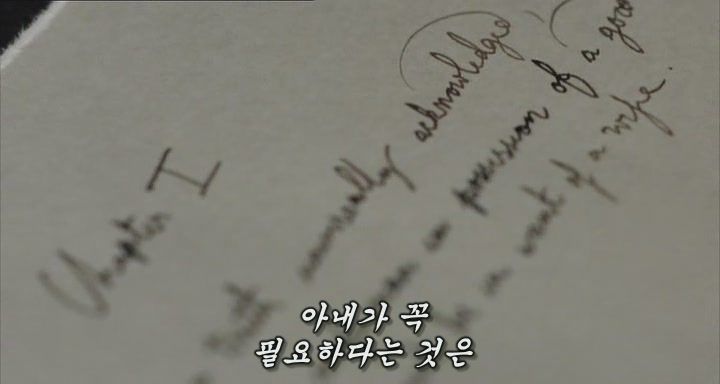 Chapter I
truth universally acknowledged,
man in possession of a good
be in want of a wife.
아내가 꼭
필요하다는 것은